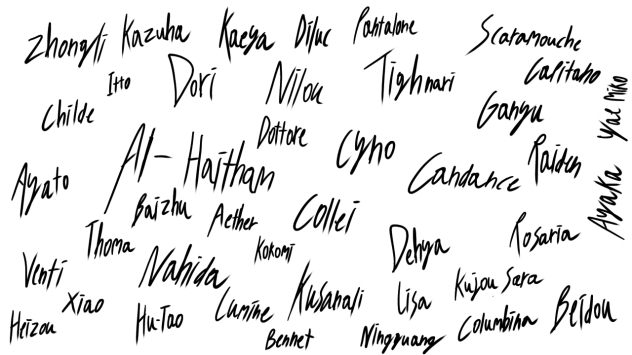 Zhongli Kazuha Kaeya Diluc Pantalone Scaramouche
Itto Dori Nilou Tighnari Capitano
Childe Ganyu Yae Miko
Dottore
Al-Haitham Cyno Candance Raiden
Ayato Baizhu Aether Collei Ayaka
Thoma Kokomi Dehya Rosaria
Venti Nahida Kusanali Lisa Kujou Sara
Xiao Lumine Columbina Beidou
Heizou Hu-Tao Bennet Ningguang